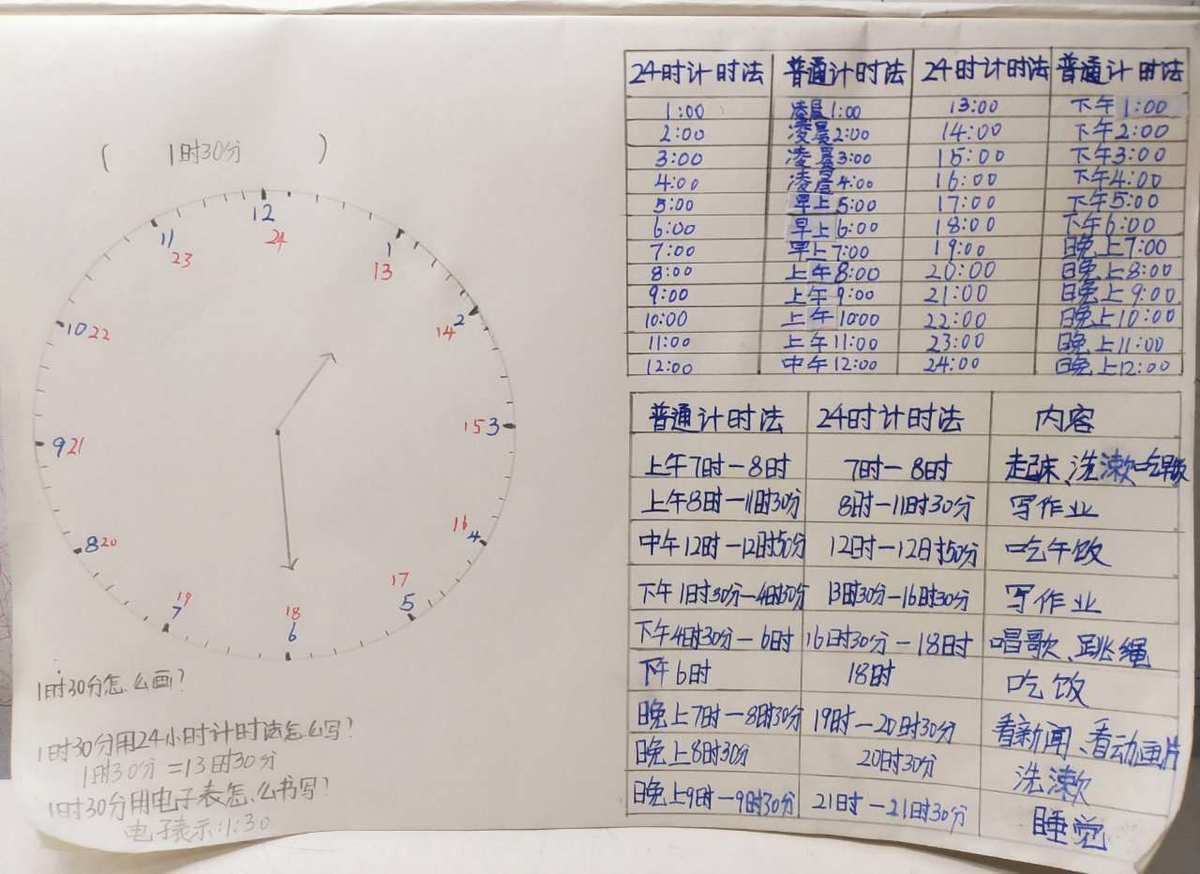 ( 1时30分 )
12
24
11
23
1
13
10 22
14 2
9 21
15 3
8 20
16
4
19
7
17
5
18
6
1时30分怎么画?
1时30分用24小时计时法怎么写?
1时30分=13时30分
1时30分用电子表怎么书写?
电子表示:1:30
24时计时法 普通计时法 24时计时法 普通计时法
1:00 凌晨1:00 13:00 下午1:00
2:00 凌晨2:00 14:00 下午2:00
3:00 凌晨3:00 15:00 下午3:00
4:00 凌晨4:00 16:00 下午4:00
5:00 早上5:00 17:00 下午5:00
6:00 早上6:00 18:00 下午6:00
7:00 早上7:00 19:00 晚上7:00
8:00 上午8:00 20:00 晚上8:00
9:00 上午9:00 21:00 晚上9:00
10:00 上午10:00 22:00 晚上10:00
11:00 上午11:00 23:00 晚上11:00
12:00 中午12:00 24:00 晚上12:00
普通计时法 24时计时法 内容
上午7时-8时 7时-8时 走起床、洗漱吃早饭
上午8时-11时30分 8时-11时30分 写作业
中午12时-12时50分 12时-12时50分 吃午饭
下午1时30分-4时30分 13时30分-16时30分 写作业
下午4时30分-6时 16时30分-18时 唱歌、跳绳
下午6时 18时 吃饭
晚上7时-8时30分 19时-20时30分 看新闻、看动画片
晚上8时30分 20时30分 洗漱
晚上9时-9时30分 21时-21时30分 睡觉